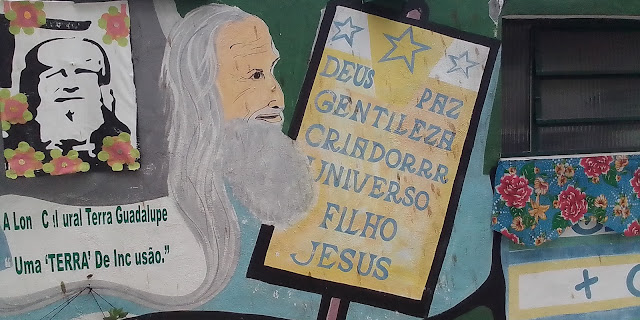 DEUS PAZ
GENTILEZA
CRIADORRR
UNIVERSO
FILHO
JESUS
A Lon C ural Terra Guadalupe
"Uma 'TERRA' De Inc usão."
+